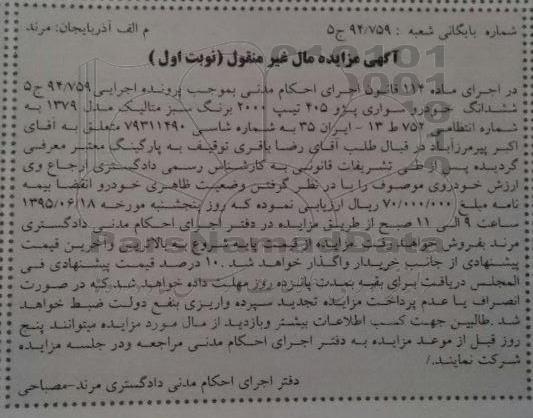 شماره بایگانی شعبه : ۹۴/۷۵۹ ج۵ م الف آذربایجان: مرند
آگهی مزایده مال غیر منقول (نوبت اول)
در اجرای ماده ۱۱۴ قانون اجرای احکام مدنی بموجب پرونده اجرایی ۹۴/۷۵۹ ج۵
ششدانگ خودرو سواری پژو ۴۰۵ تیپ ۲۰۰۰ برنگ سبز متالیک مدل ۱۳۷۹ به
شماره انتظامی ۷۵۲ ط ۱۳ - ایران ۳۵ به شماره شاسی ۷۹۳۱۱۴۹۰ متعلق به آقای
اکبر پیرمرزآباد در قبال طلب آقای رضا باقری توقیف به پارکینگ معتبر معرفی
گردیده پس از طی تشریفات قانونی به کارشناس رسمی دادگستری ارجاع وی
ارزش خودروی موصوف را با در نظر گرفتن وضعیت ظاهری خودرو انقضا بیمه
نامه مبلغ ۷۰/۰۰۰/۰۰۰ ریال ارزیابی نموده که روز پنجشنبه مورخه ۱۳۹۵/۰۶/۱۸
ساعت ۹ الی ۱۱ صبح از طریق مزایده در دفتر اجرای احکام مدنی دادگستری
مرند بفروش خواهد رفت مزایده از قیمت پایه شروع به بالاترین و آخرین قیمت
پیشنهادی از جانب خریدار واگذار خواهد شد .۱۰ درصد قیمت پیشنهادی فی
المجلس دریافت برای بقیه بمدت پانزده روز مهلت داده خواهد شد که در صورت
انصراف یا عدم پرداخت مزایده تجدید سپرده واریزی بنفع دولت ضبط خواهد
شد .طالبین جهت کسب اطلاعات بیشتر وبازدید از مال مورد مزایده میتوانند پنج
روز قبل از موعد مزایده به دفتر اجرای احکام مدنی مراجعه ودر جلسه مزایده
شرکت نمایند./
دفتر اجرای احکام مدنی دادگستری مرند-مصباحی